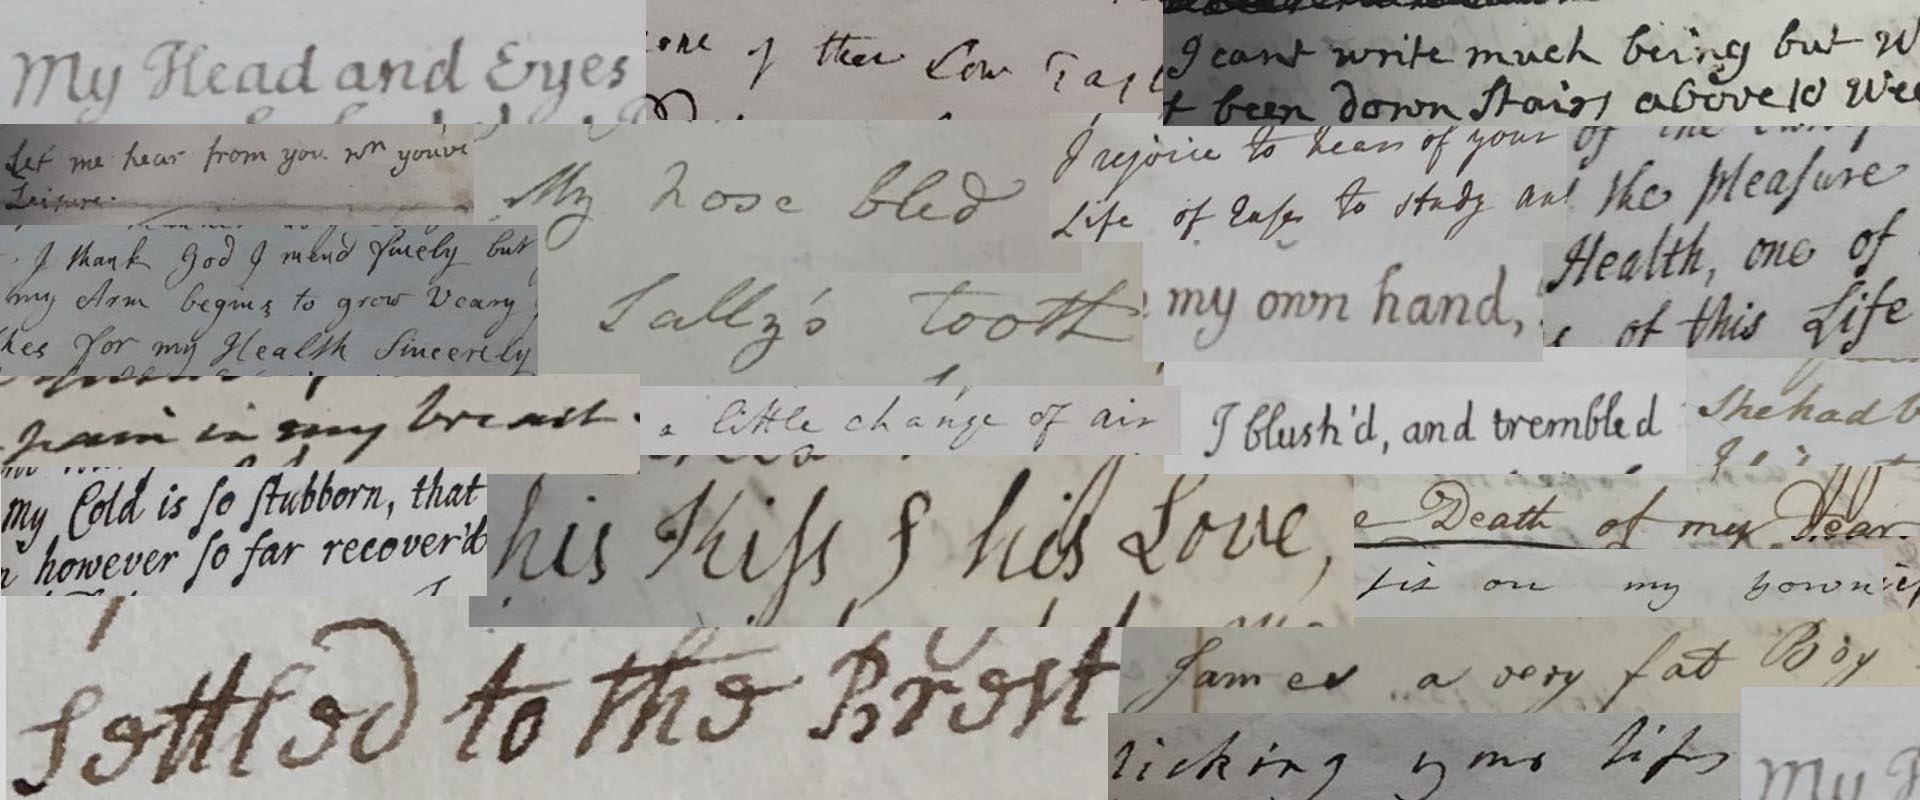 My Head and Eyes
one of thee Low
I cant write much being but
been down Stairs above 10
Let me hear from you wn youve
Leisure.
My nose bled
I rejoice to hear of your
Life of Ease to study
the pleasure
Health, one of
of this Life
I thank God I mend finely but
my Arm begins to grow Weary
for my Health Sincerely
Sally's tooth
my own hand,
pain in my breast
a little change of air
I blush'd, and trembled
She had
my Cold is so stubborn, that
however so far recover'd
his Kiss & his Love,
Death of my Dear
on my
settled to the Brest
James a very fat Boy
licking
My